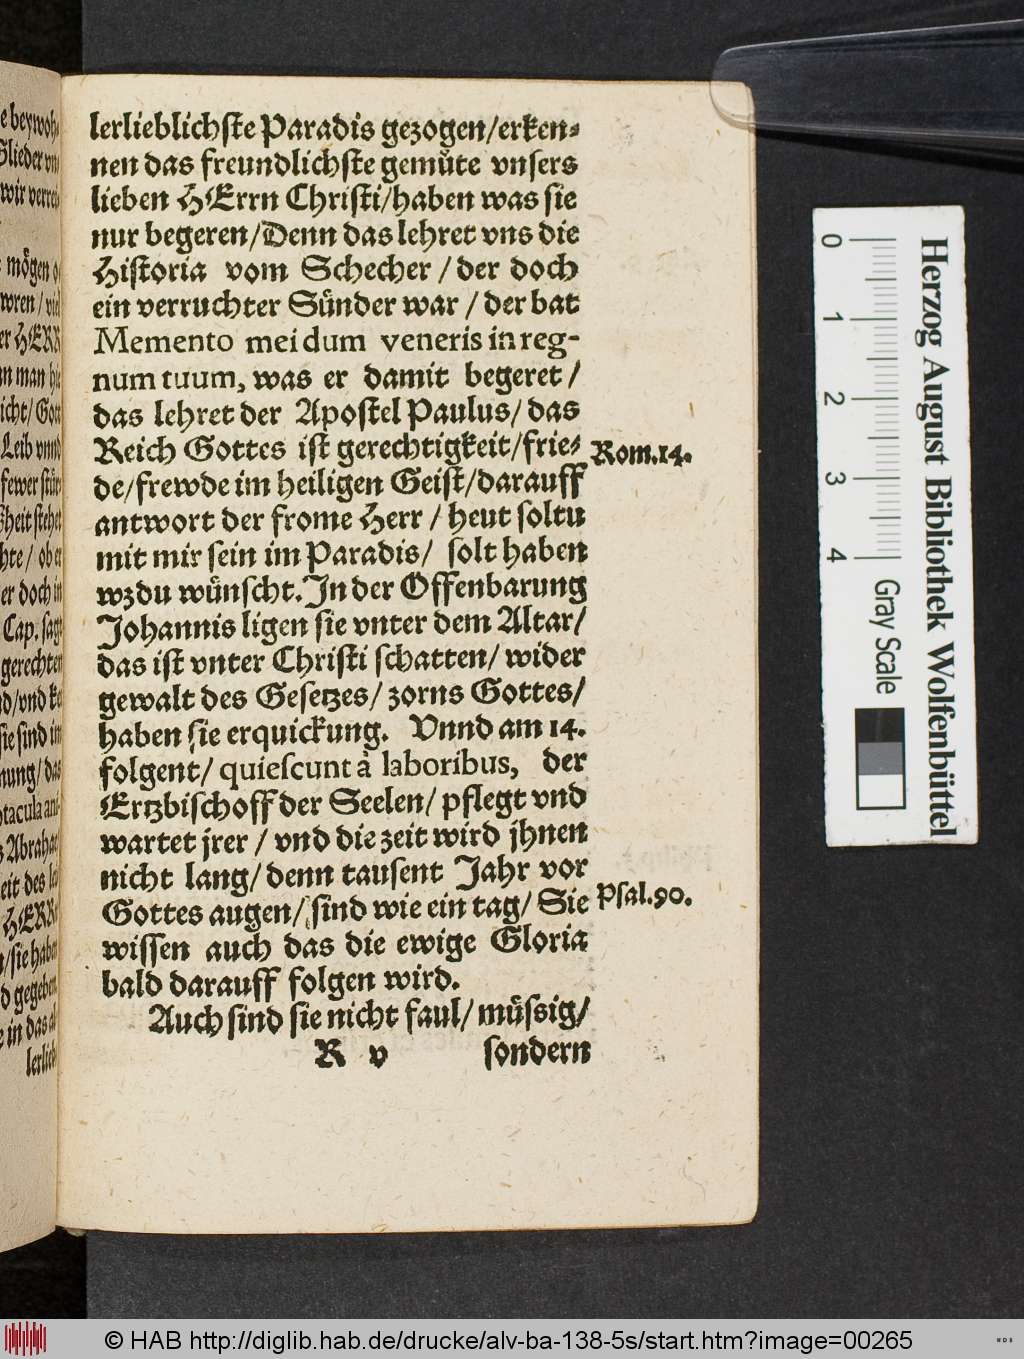 lerlieblichste Paradis gezogen/erken-
nen das freundlichste gemüte vnsers
lieben HErrn Christi/haben was sie
nur begeren/Denn das lehret vns die
Historia vom Schecher / der doch
ein verruchter Sünder war / der bat
Memento mei dum veneris in reg-
num tuum, was er damit begeret /
das lehret der Apostel Paulus/ das
Reich Gottes ist gerechtigkeit/frie-
Rom.14.
de/frewde im heiligen Geist/darauff
antwort der frome Herr / heut soltu
mit mir sein im Paradis/ solt haben
wz du wünscht. In der Offenbarung
Johannis ligen sie vnter dem Altar/
das ist vnter Christi schatten/ wider
gewalt des Gesetzes/ zorns Gottes/
haben sie erquickung. Vnnd am 14.
folgent/ quiescunt à laboribus, der
Ertzbischoff der Seelen/ pflegt vnd
wartet jrer / vnd die zeit wird jhnen
nicht lang/ denn tausent Jahr vor
Gottes augen/ sind wie ein tag/ Sie
Psal.90.
wissen auch das die ewige Gloria
bald darauff folgen wird.
Auch sind sie nicht faul/ müssig/
R v
sondern
e beywoh-
Glieder vn
wir verrei
mögen
wren / viel
er HERR
n man hie
icht/ Gott
Leib vnnd
fewer stür
heit stehet
hte/ ob er
er doch in
Cap. sagt
gerechten
nd/vnd ke
sie sind in
nung/ das
ptacula ani-
Abraha
eit des
HERR
n/sie haben
d gegeben
e in das al
lerlieb
0
1
2
3
4
Gray Scale
Herzog August Bibliothek Wolfenbüttel
© HAB http://diglib.hab.de/drucke/alv-ba-138-5s/start.htm?image=00265